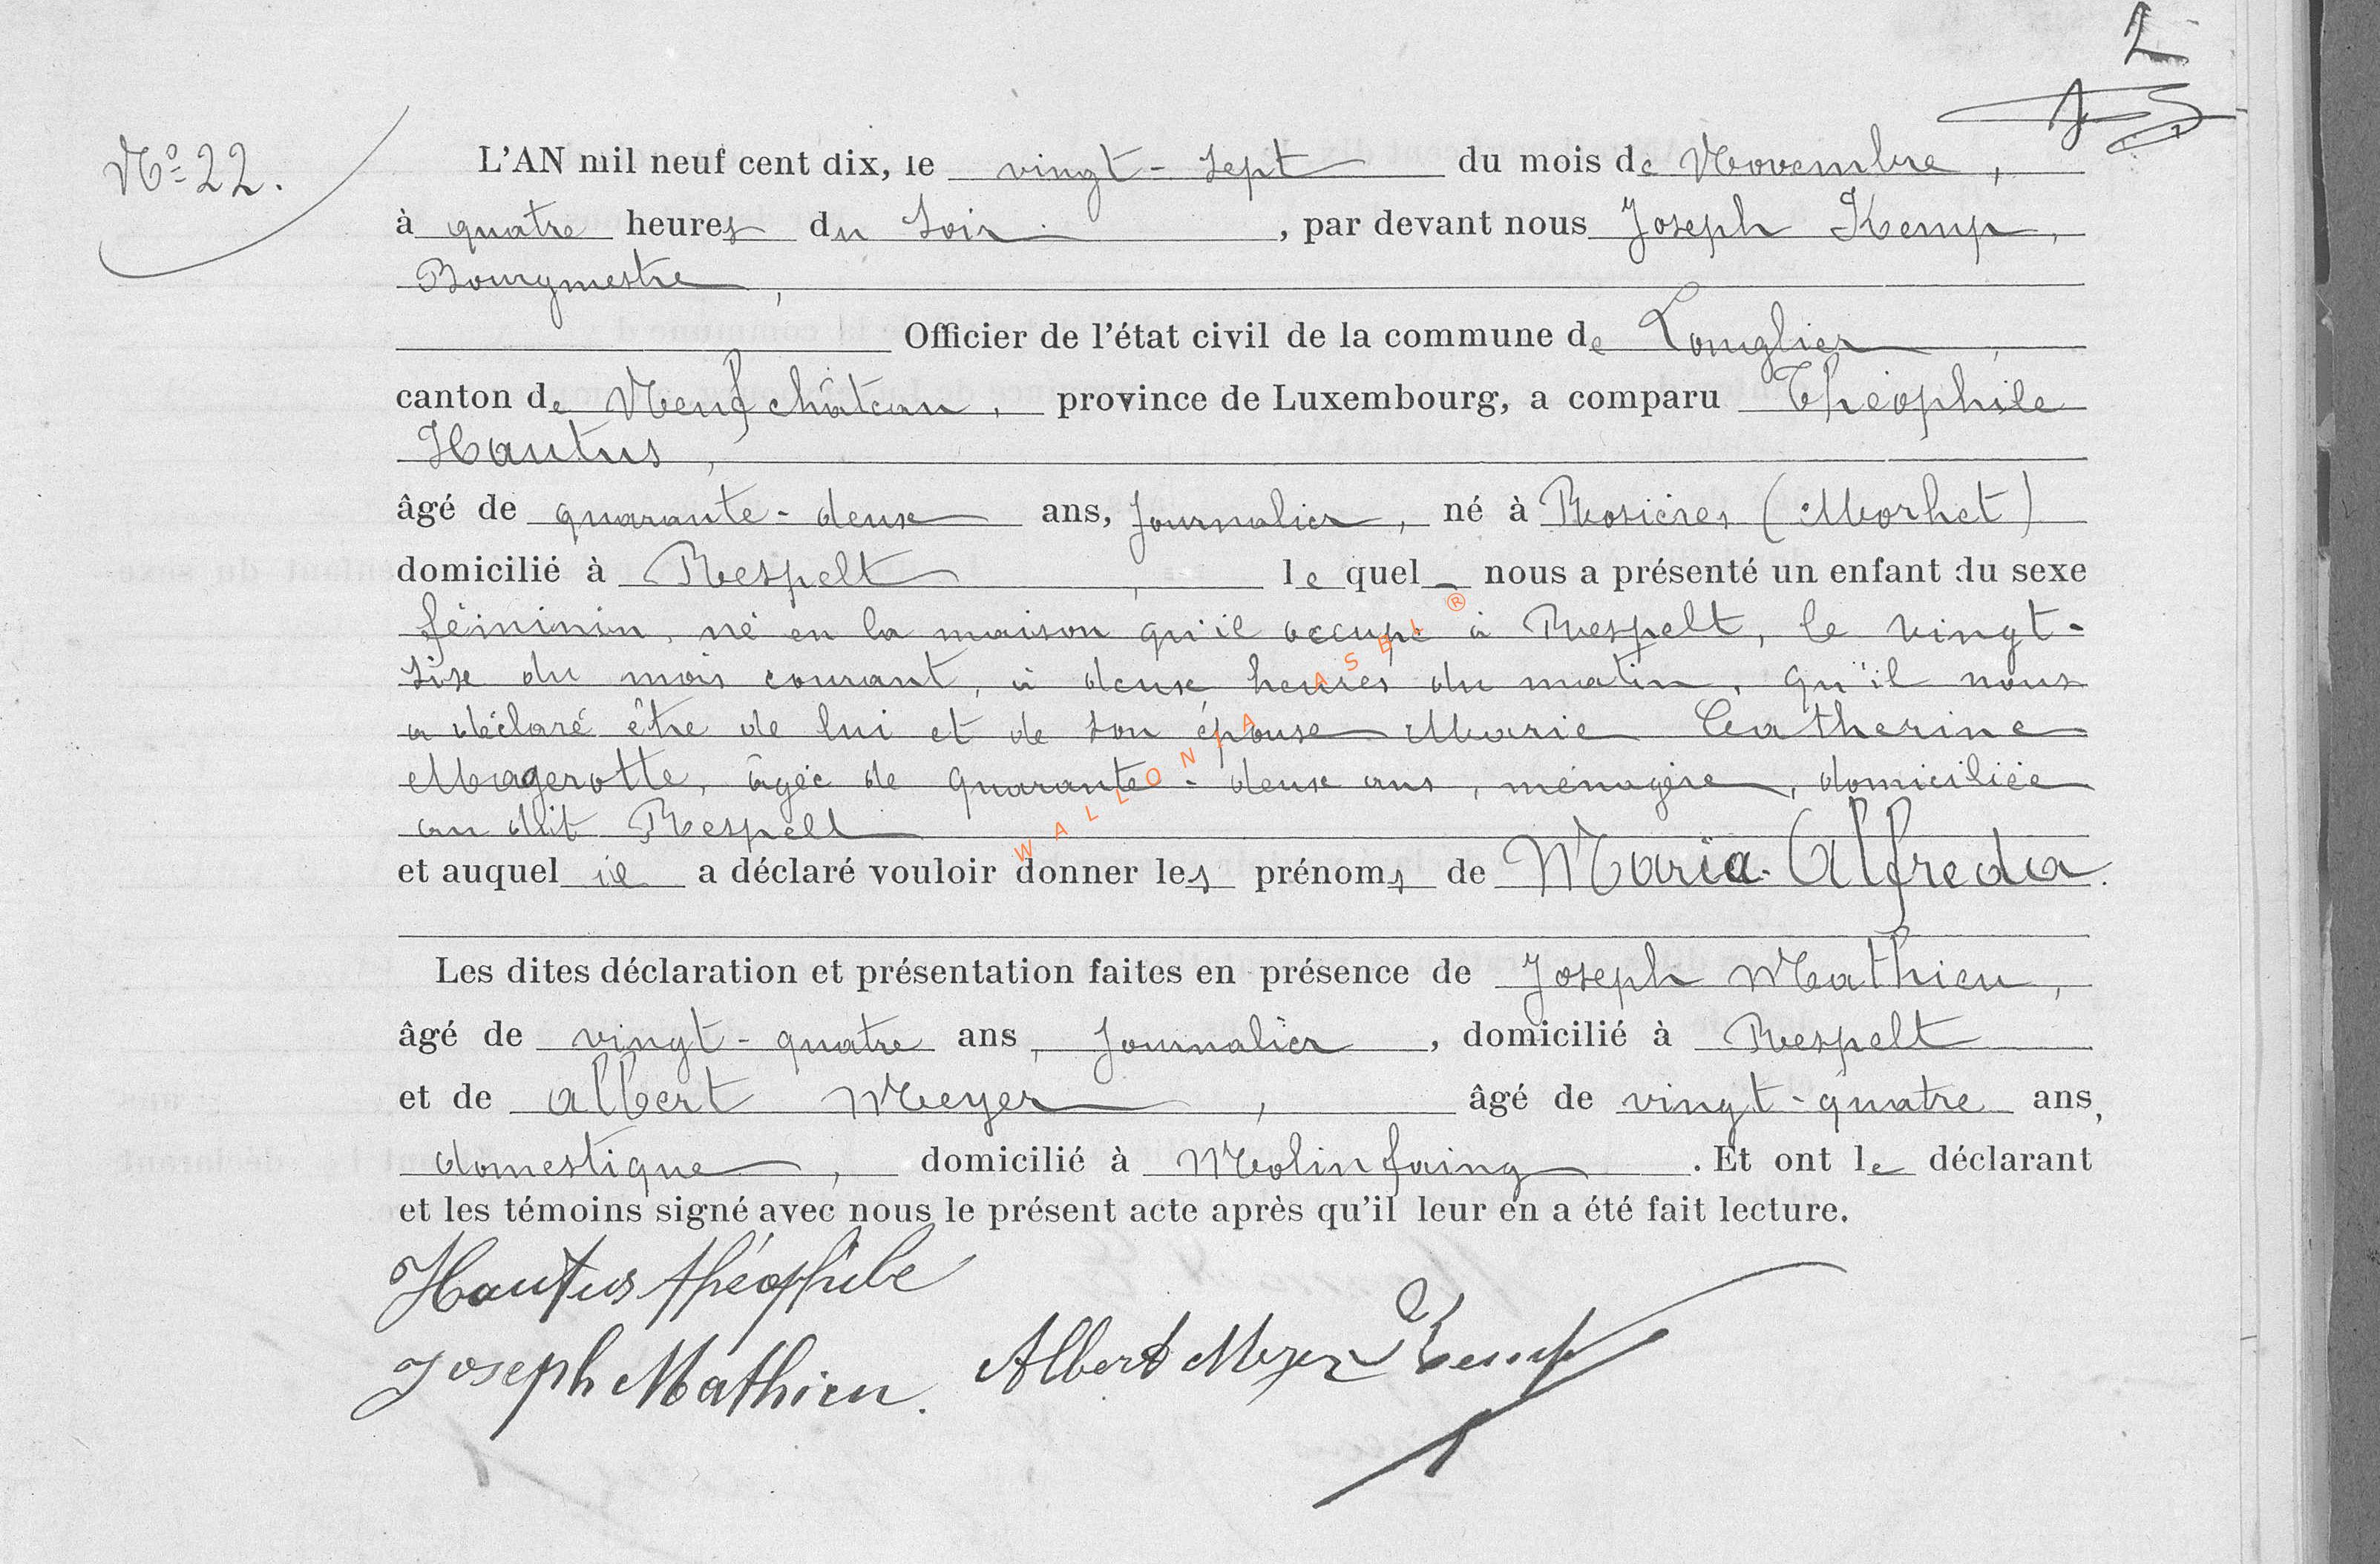 2
N° 22.
L'AN mil neuf cent dix, le vingt-sept du mois de Novembre,
à quatre heures du soir, par devant nous Joseph Kemp,
Bourgmestre,
Officier de l'état civil de la commune de Longlier,
canton de Neufchâteau, province de Luxembourg, a comparu Théophile
Hautus,
âgé de quarante-deux ans, journalier, né à Rosières (Morhet)
domicilié à Respelt, le quel nous a présenté un enfant du sexe
féminin, né en la maison qu'il occupe à Respelt, le vingt-
six du mois courant, à deux heures du matin, qu'il nous
a déclaré être de lui et de son épouse Marie Catherine
Magerotte, âgée de quarante-deux ans, ménagère, domiciliée
au dit Respelt
et auquel il a déclaré vouloir donner les prénoms de Maria-Alfreda.
Les dites déclaration et présentation faites en présence de Joseph Mathieu,
âgé de vingt-quatre ans, journalier, domicilié à Respelt
et de Albert Meyer, âgé de vingt-quatre ans,
domestique, domicilié à Molinfaing. Et ont le déclarant
et les témoins signé avec nous le présent acte après qu'il leur en a été fait lecture.
Hautus théophile
Joseph Mathieu. Albert Meyer Kemp
WALLONIA ASBL ®